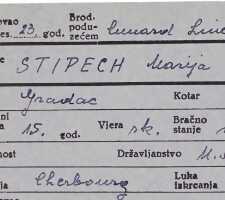 ovao
es. 23. god. Brod. podu-
zećem Cunard Line
e STIPECH Marija
Gradac Kotar
ni
a 15. god. Vjera rk. Bračno
stanje
nost Državljanstvo
ja Cherbourg Luka
iskrcanja